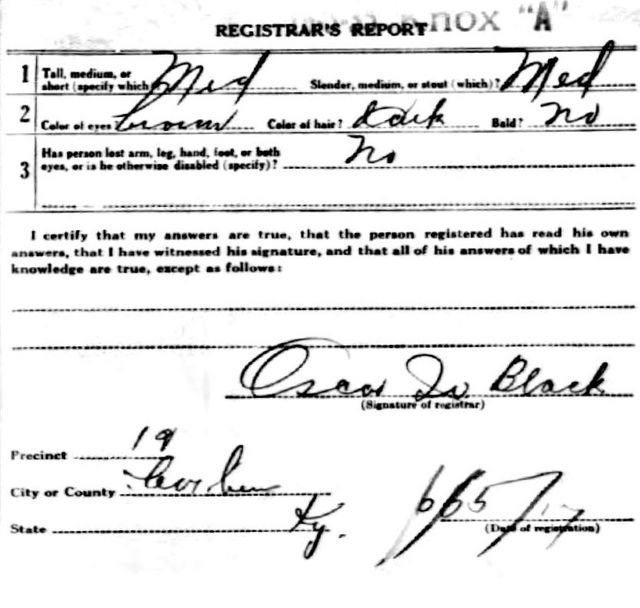 Knox "A"
REGISTRAR'S REPORT
1 Tall, medium, or short (specify which) Med Slender, medium, or stout (which)? Med
2 Color of eyes brown Color of hair? dark Bald? No
3 Has person lost arm, leg, hand, foot, or both eyes, or is he otherwise disabled (specify)? No
I certify that my answers are true, that the person registered has read his own
answers, that I have witnessed his signature, and that all of his answers of which I have
knowledge are true, except as follows:
Oscar W Black
(Signature of registrar)
Precinct 19
City or County Corbin
State Ky.
(Date of registration)